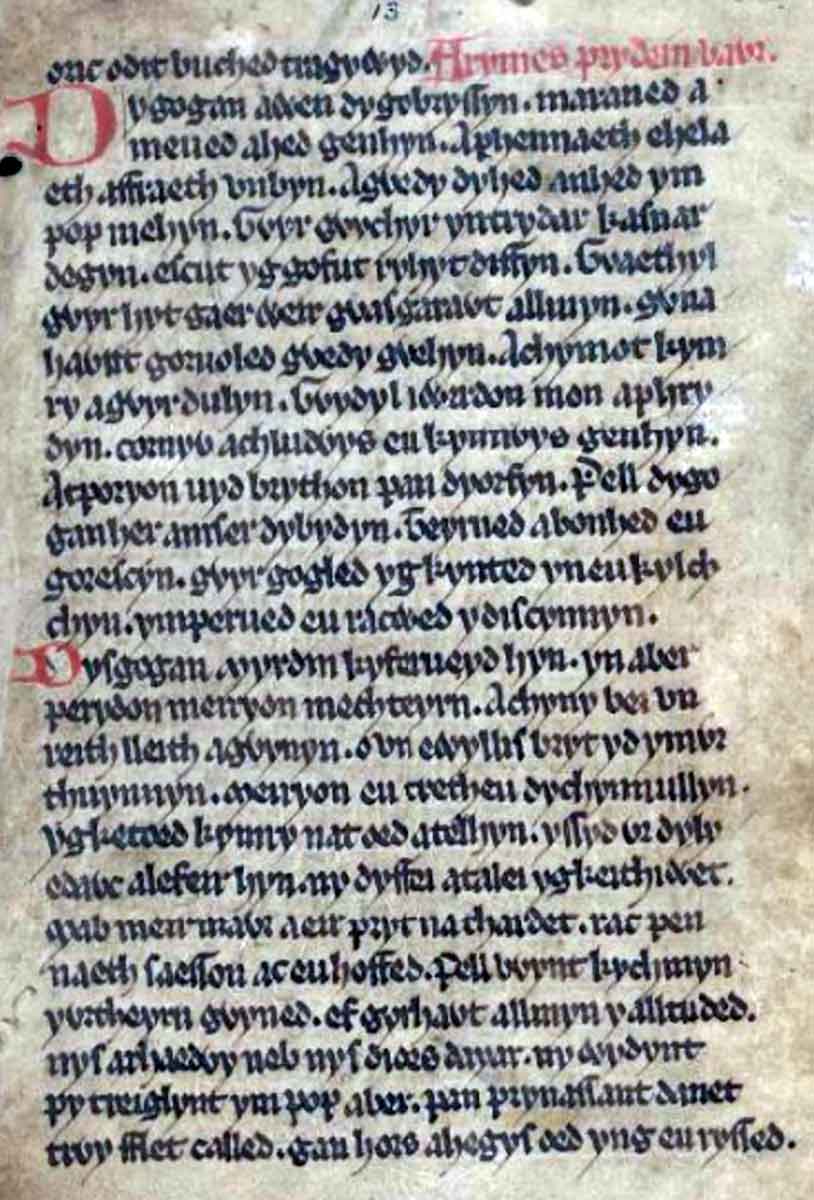 13
oric odit buched tragywyd. Arymes prydein vavr.
Dygogan awen dygobryssyn. maraned a
meued ahed genhyn. Aphennaeth ehela
eth affraeth vnbyn. Agvedy dyhed anhed ym
pop mehyn. Gvyr gvychyr yntrydar kasnar
degyn. escut yggofut ryhyt diffyn. Gvaethyl
gvyr hyt gaer weir gvasgaravt allmyn. gvna
havnt goruoled gvedy gvehyn. Achymot kym
ry agvyr dulyn. Gvydyl iwerdon mon aphry
dyn. cornyv achludvys eu kynnvys genhyn.
Atporyon uyd brython pan dyorfyn. Pell dygo
ganher amser dybydyn. Teyrned abonhed eu
gorescyn. gvyr gogled yg kynted yneu kylch
chyn. ymperued eu racwed ydiscynnyn.
Dysgogan myrdin kyferuyd hyn. yn aber
perydon meiryon mechteyrn. Achyny bei vn
reith lleith agvynyn. o vn ewyllis bryt yd ymvr
thuynnyn. meiryon eu tretheu dychynnullyn.
ygketoed kymry nat oed atelhyn. yssyd vr dyly
edavc alefeir hyn. ny dyffei atalei ygkeithiwet.
mab meir mavr a eir pryt na thardet. rac pen
naeth saesson ac eu hoffed. Pell bvynt kychmyn
y vrtheyrn gvyned. ef gyrhavt allmyn y alltuded.
nys arhaedvy neb nys dioes dayar. ny wydynt
py treiglynt ym pop aber. pan prynassant danet
trvy fflet called. gan hors ahegys oed yng eu ryssed.